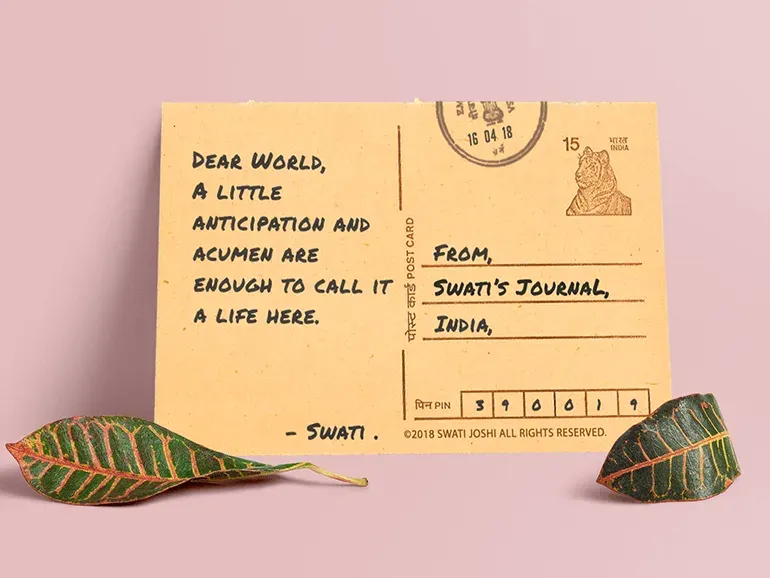 DEAR WORLD,
A LITTLE
ANTICIPATION AND
ACUMEN ARE
ENOUGH TO CALL IT
A LIFE HERE.
- SWATI .
16 04 18
15 भारत
INDIA
पोस्ट कार्ड POST CARD
FROM,
SWATI'S JOURNAL,
INDIA,
पिन PIN 3 9 0 0 1 9
©2018 SWATI JOSHI ALL RIGHTS RESERVED.